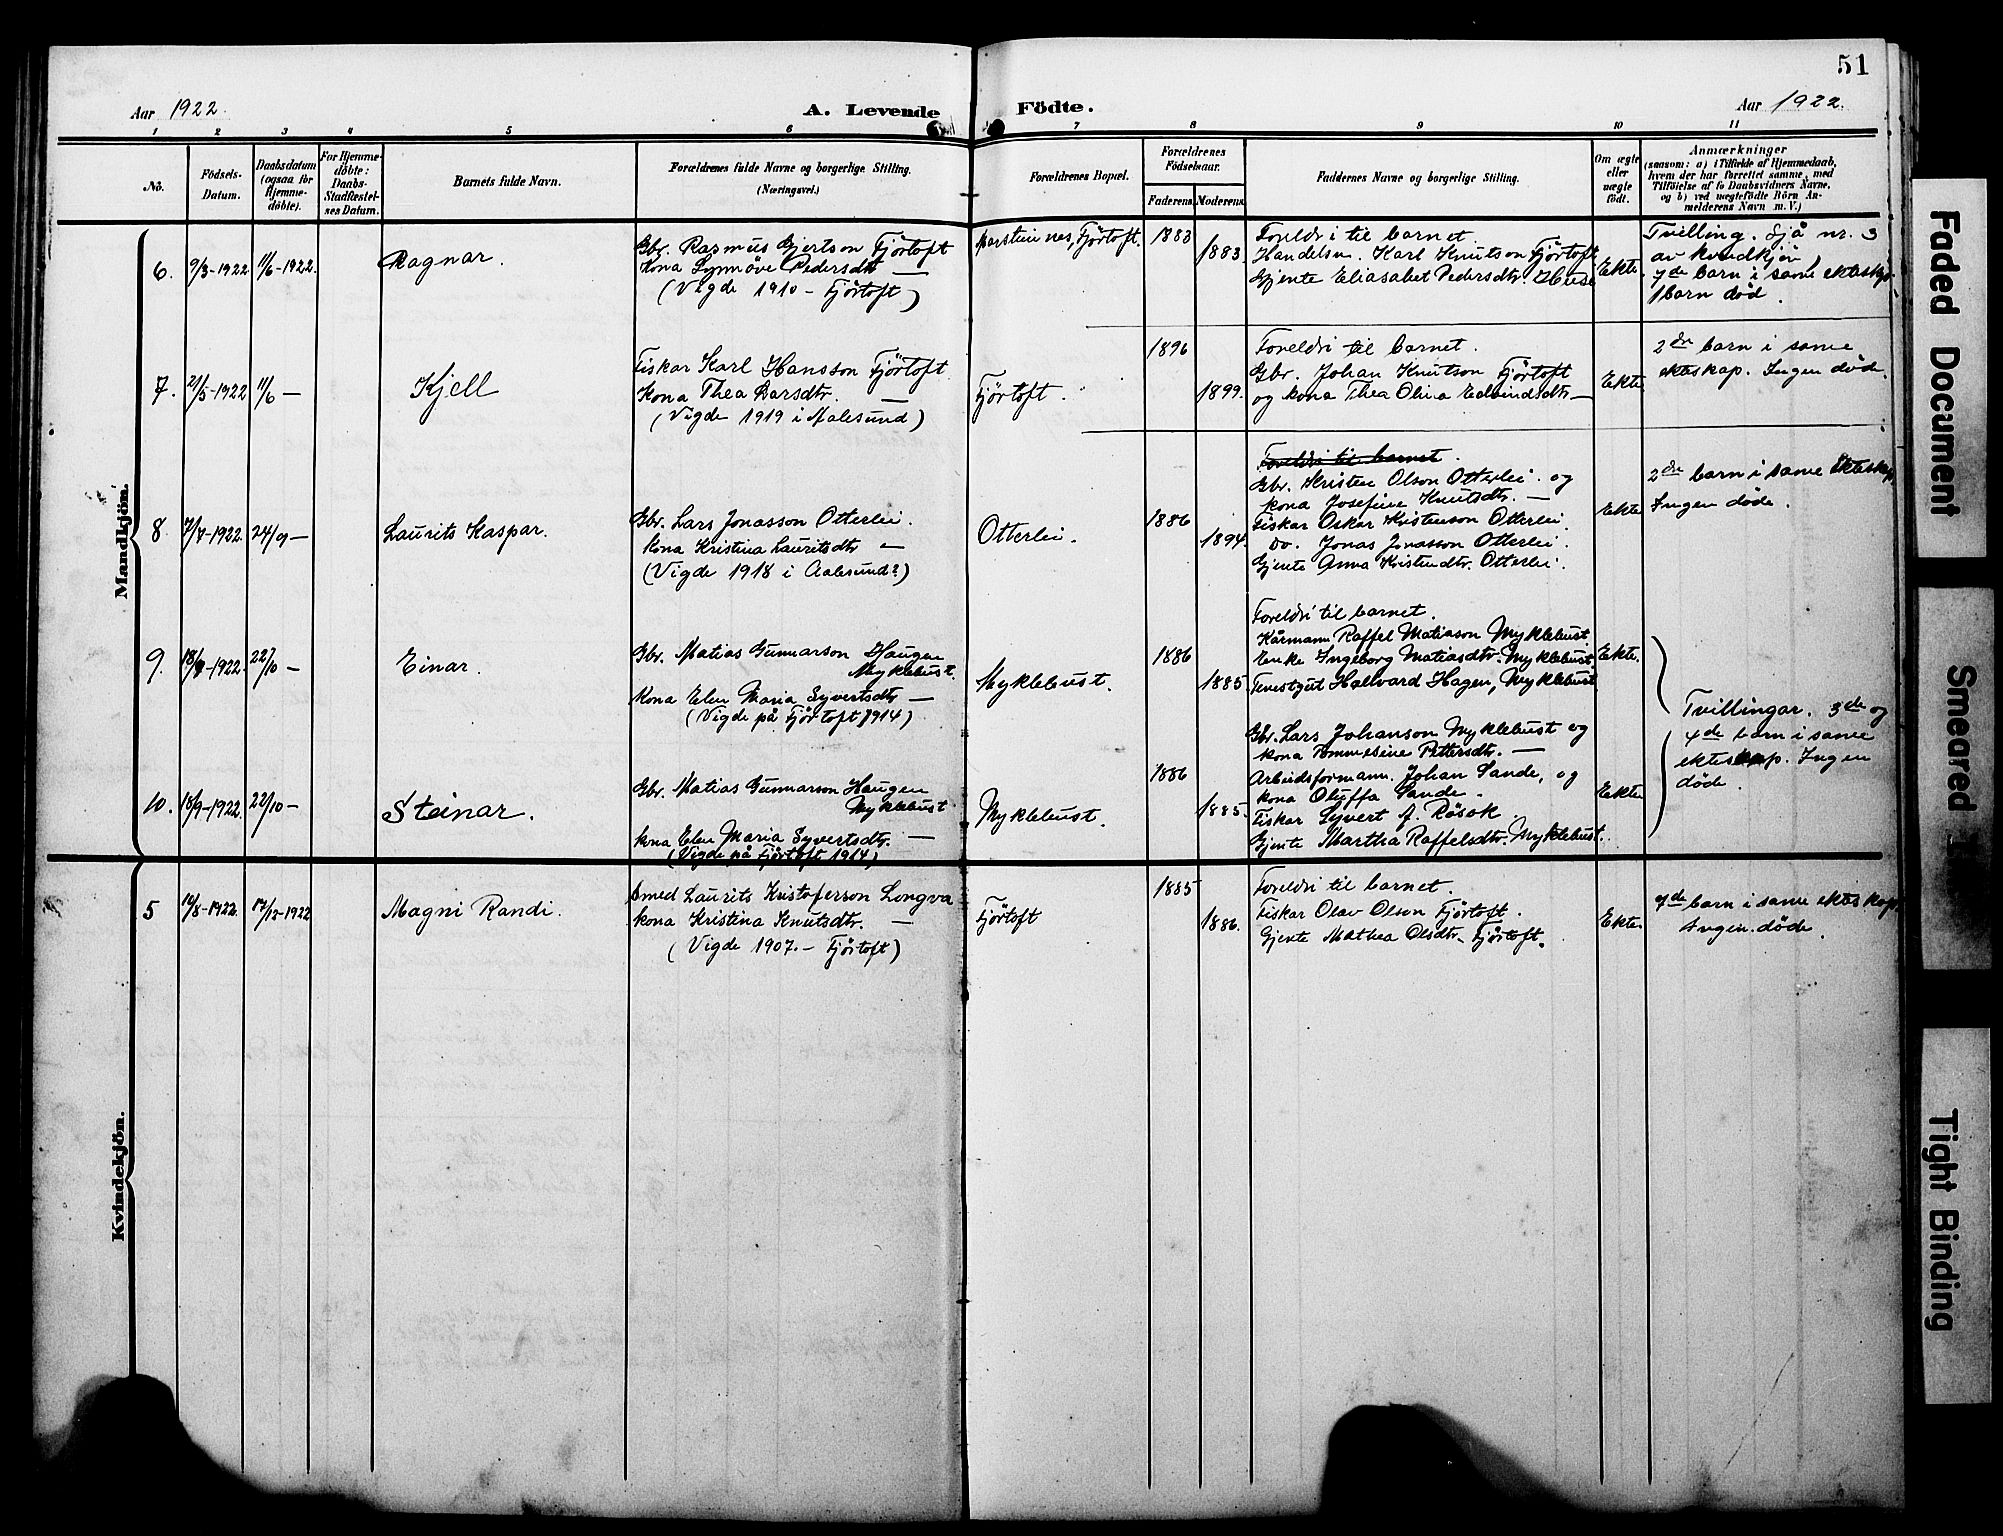 51
Aar 1922.
A. Levende
Födte.
Aar 1922.
1 2 3 4 5 6 7 8 9 10 11
No.
Födsels-
Datum.
Daabsdatum
(ogsaa för
Hjemme-
döbte).
For Hjemme-
döbte:
Daabs-
Stadfæstel-
ses Datum.
Barnets fulde Navn.
Forældrenes fulde Navne og borgerlige Stilling.
(Næringsvei.)
Forældrenes Bopæl.
Forældrenes
Födselsaar.
Faderens.
Moderens.
Faddernes Navne og borgerlige Stilling.
Om ægte
eller
uægte
födt.
Anmærkninger
(saasom: a) i Tilfælde af Hjemmedaab,
hvem der har forrettet samme, med
Tilföielse af to Daabsvidners Navne,
og b) ved uægtefödte Börn An-
melderens Navn m. V.)
Mandkjön.
6. 9/3-1922 11/6-1922.
Ragnar.
Gbr. Rasmus Gjertson Fjörtoft
Kona Synnöve Pedersdtr —
(Vigde 1910 - Fjörtoft)
Fjörtoft.
1883
1883
Foreldri til barnet.
Handelsm. Karl Knutson Fjörtoft
Gjente Eliasabet Pedersdtr. Huse
Ekte
Tvilling. Sjå nr. 3
av kvendkjön
7de barn i same ekteskap.
1 barn död.
7. 21/5-1922 11/6 —
Kjell
Fiskar Karl Hansson Fjörtoft
Kona Thea Larsdtr. —
(Vigde 1919 i Aalesund)
Fjörtoft.
1896
1899.
Foreldri til barnet.
Gbr. Johan Knutson Fjörtoft
og kona Thea Olina Edvindsdtr —
Ekte
2dre barn i same
ekteskap. Ingen döde.
8. 7/7-1922. 24/9 —
Laurits Kaspar.
Gbr. Lars Jonasson Otterlei.
Kona Kristina Lauritsdtr —
(Vigde 1918 i Aalesund?)
Otterlei.
1886
1894.
Foreldri til barnet.
Gbr. Kristen Olson Otterlei. og
kona Josefine Knutsdtr. —
Fiskar Oskar Kristenson Otterlei.
Do. Jonas Jonasson Otterlei.
Gjente Anna Kristendtr. Otterlei.
Ekte
2dre barn i same ekteskap,
Ingen döde.
9. 18/9-1922. 22/10 —
Einar.
Gbr. Matias Gunnarson Haugen
Myklebust.
Kona Elen Maria Syvertsdtr —
(Vigde på Fjörtoft 1914)
Myklebust.
1886
1885
Foreldri til barnet.
Kårmann Raffel Matiason Myklebust
Enke Ingeborg Matiasdtr. Myklebust.
Tenestgut Hallvard Hagen, Myklebust
Ekte.
Tvillingar. 3de og
4de barn i same
ekteskap. Ingen
döde.
10. 18/9-1922. 22/10 —
Steinar.
Gbr. Matias Gunnarson Haugen
Myklebust
Kona Elen Maria Syvertsdtr. —
(Vigde på Fjörtoft 1914)
Myklebust.
1886
1885.
Gbr. Lars Johanson Myklebust og
kona Tommesine Pettersdtr. —
Arbeidsformann. Johan Sande, og
kona Oluffa Sande.
Fiskar Syvert J. Rösok
Gjente Martha Raffelsdtr. Myklebust.
Ekte
Kvindekjön.
5 14/8-1922. 17/12-1922
Magni Randi.
Smed Laurits Kristoferson Longva
kona Kristina Knutsdtr. —
(Vigde 1907. - Fjörtoft)
Fjörtoft
1885
1886.
Foreldri til barnet.
Fiskar Olav Olson Fjörtoft.
Gjente Mathea Olsdtr. Fjörtoft.
Ekte
7de barn i same ekteskap,
Ingen döde.
Faded Document
Smeared
Tight Binding